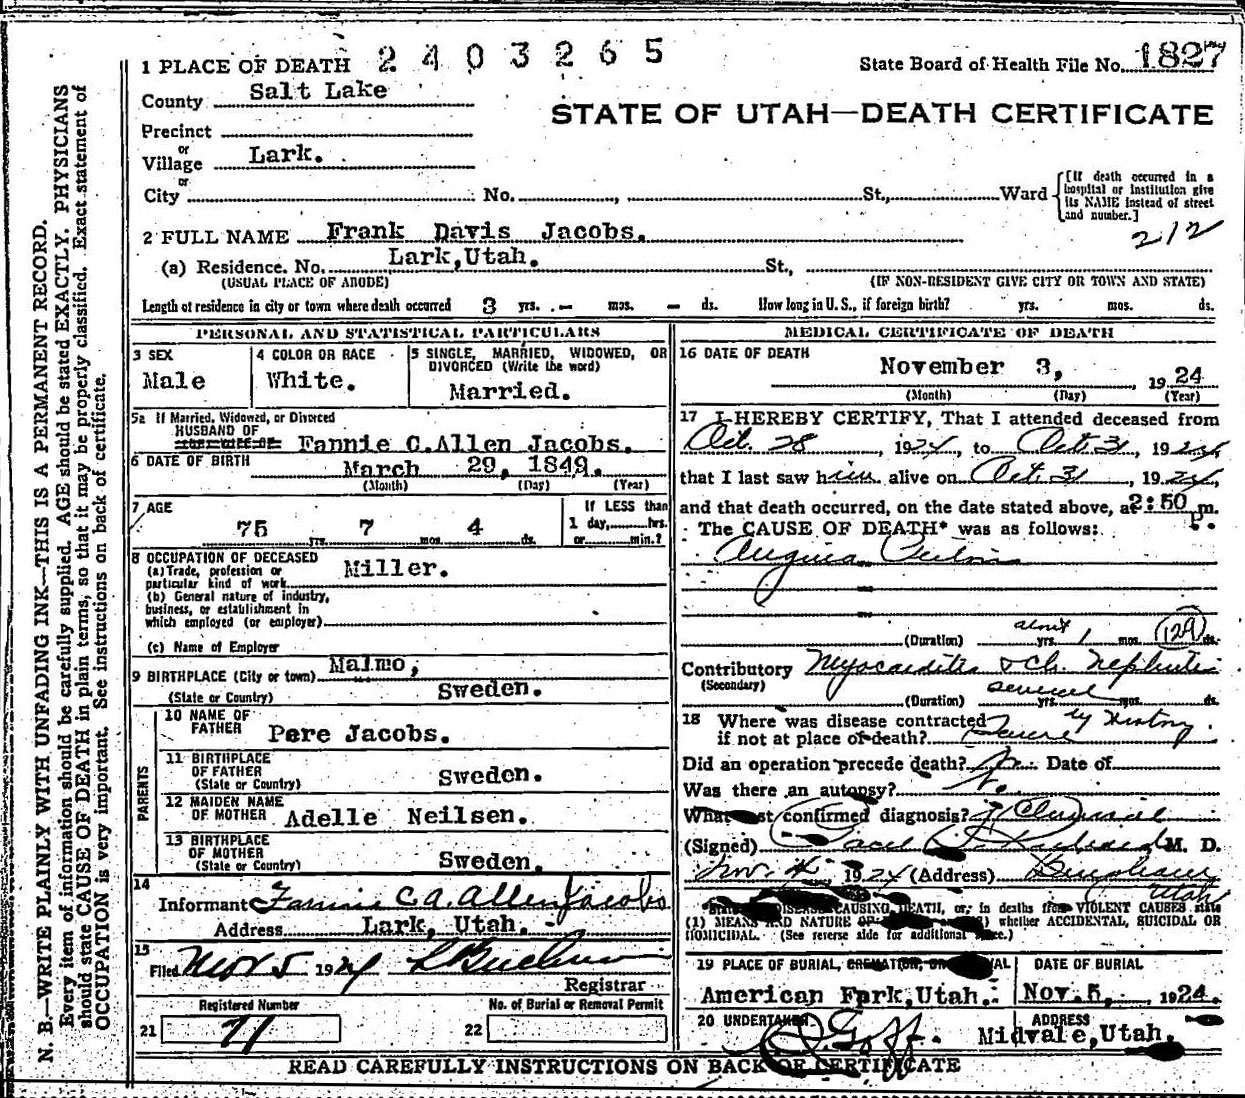 1 PLACE OF DEATH 2403265
State Board of Health File No. 1827
County Salt Lake
STATE OF UTAH—DEATH CERTIFICATE
Precinct
or
Village Lark.
or
City No. , St., Ward
[If death occurred in a hospital or institution give its NAME instead of street and number.]
212
2 FULL NAME Frank Davis Jacobs.
(a) Residence. No. Lark, Utah. St.,
(USUAL PLACE OF ABODE) (IF NON-RESIDENT GIVE CITY OR TOWN AND STATE)
Length of residence in city or town where death occurred 3 yrs. - mos. - ds. How long in U. S., if foreign birth? yrs. mos. ds.
PERSONAL AND STATISTICAL PARTICULARS
3 SEX
Male
4 COLOR OR RACE
White.
5 SINGLE, MARRIED, WIDOWED, OR DIVORCED (Write the word)
Married.
5a If Married, Widowed, or Divorced
HUSBAND OF
Fannie C. Allen Jacobs.
6 DATE OF BIRTH March 29, 1849.
(Month) (Day) (Year)
7 AGE
75 yrs. 7 mos. 4 ds.
If LESS than
1 day, hrs.
or min.?
8 OCCUPATION OF DECEASED
(a) Trade, profession or particular kind of work Miller.
(b) General nature of industry, business, or establishment in which employed (or employer)
(c) Name of Employer
9 BIRTHPLACE (City or town) Malmo,
(State or Country) Sweden.
PARENTS
10 NAME OF FATHER Pere Jacobs.
11 BIRTHPLACE OF FATHER
(State or Country) Sweden.
12 MAIDEN NAME OF MOTHER Adelle Neilsen.
13 BIRTHPLACE OF MOTHER
(State or Country) Sweden.
14
Informant Fannie C A Allen Jacobs
Address Lark, Utah.
15
Filed Nov 5 1924
Registrar
Registered Number
21 71
No. of Burial or Removal Permit
22
MEDICAL CERTIFICATE OF DEATH
16 DATE OF DEATH
November 3, 1924
(Month) (Day) (Year)
17 I HEREBY CERTIFY, That I attended deceased from
Oct. 28, 1924, to Oct 31, 1924,
that I last saw him alive on Oct. 31, 1924,
and that death occurred, on the date stated above, at 2:50 p.m.
The CAUSE OF DEATH* was as follows:
Angina Pectoris
(Duration) about yrs. 1 mos. ds.
Contributory Myocarditis & ch. Nephritis
(Secondary)
(Duration) several yrs. mos. ds.
by History.
18 Where was disease contracted
if not at place of death?
Did an operation precede death? No. Date of
Was there an autopsy?
What test confirmed diagnosis? Clinical
(Signed) M. D.
Nov. 4, 1924 (Address) Bingham
Utah
DISEASE CAUSING DEATH, or, in deaths from VIOLENT CAUSES state
(1) MEANS AND NATURE OF whether ACCIDENTAL, SUICIDAL OR
HOMICIDAL. (See reverse side for additional space.)
19 PLACE OF BURIAL, CREMATION, OR REMOVAL
American Fork, Utah.
DATE OF BURIAL
Nov. 5, 1924.
20 UNDERTAKER
Goff.
ADDRESS
Midvale, Utah.
READ CAREFULLY INSTRUCTIONS ON BACK OF CERTIFICATE
N. B.—WRITE PLAINLY WITH UNFADING INK—THIS IS A PERMANENT RECORD.
Every item of information should be carefully supplied. AGE should be stated EXACTLY. PHYSICIANS
should state CAUSE OF DEATH in plain terms, so that it may be properly classified. Exact statement of
OCCUPATION is very important. See instructions on back of certificate.